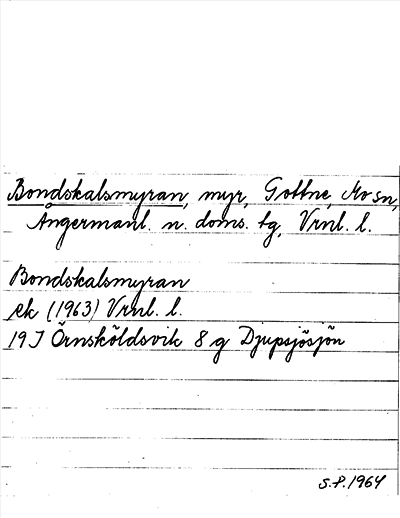 Bondskalsmyran, myr, Gottne, Mo sn,
Ångermanl. n. doms. tg, Vrnl. l.
Bondskalsmyran
ek (1963) Vrnl. l.
19 J Örnsköldsvik 8 g Djupsjösjön
S.P. 1964